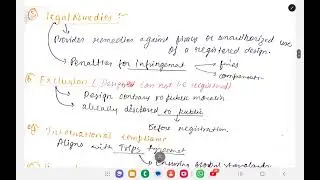 ⑤ Legal Remedies :-
Provides remedies against piracy or unauthorized use
of a registered design.
Penalties for infringement
fines
compensation
⑥ Exclusion ( Designs can not be registered)
Design contrary to public morality
already disclosed to public
Before registration.
International compliance
Aligns with TRIPs agreement
Ensuring global standards